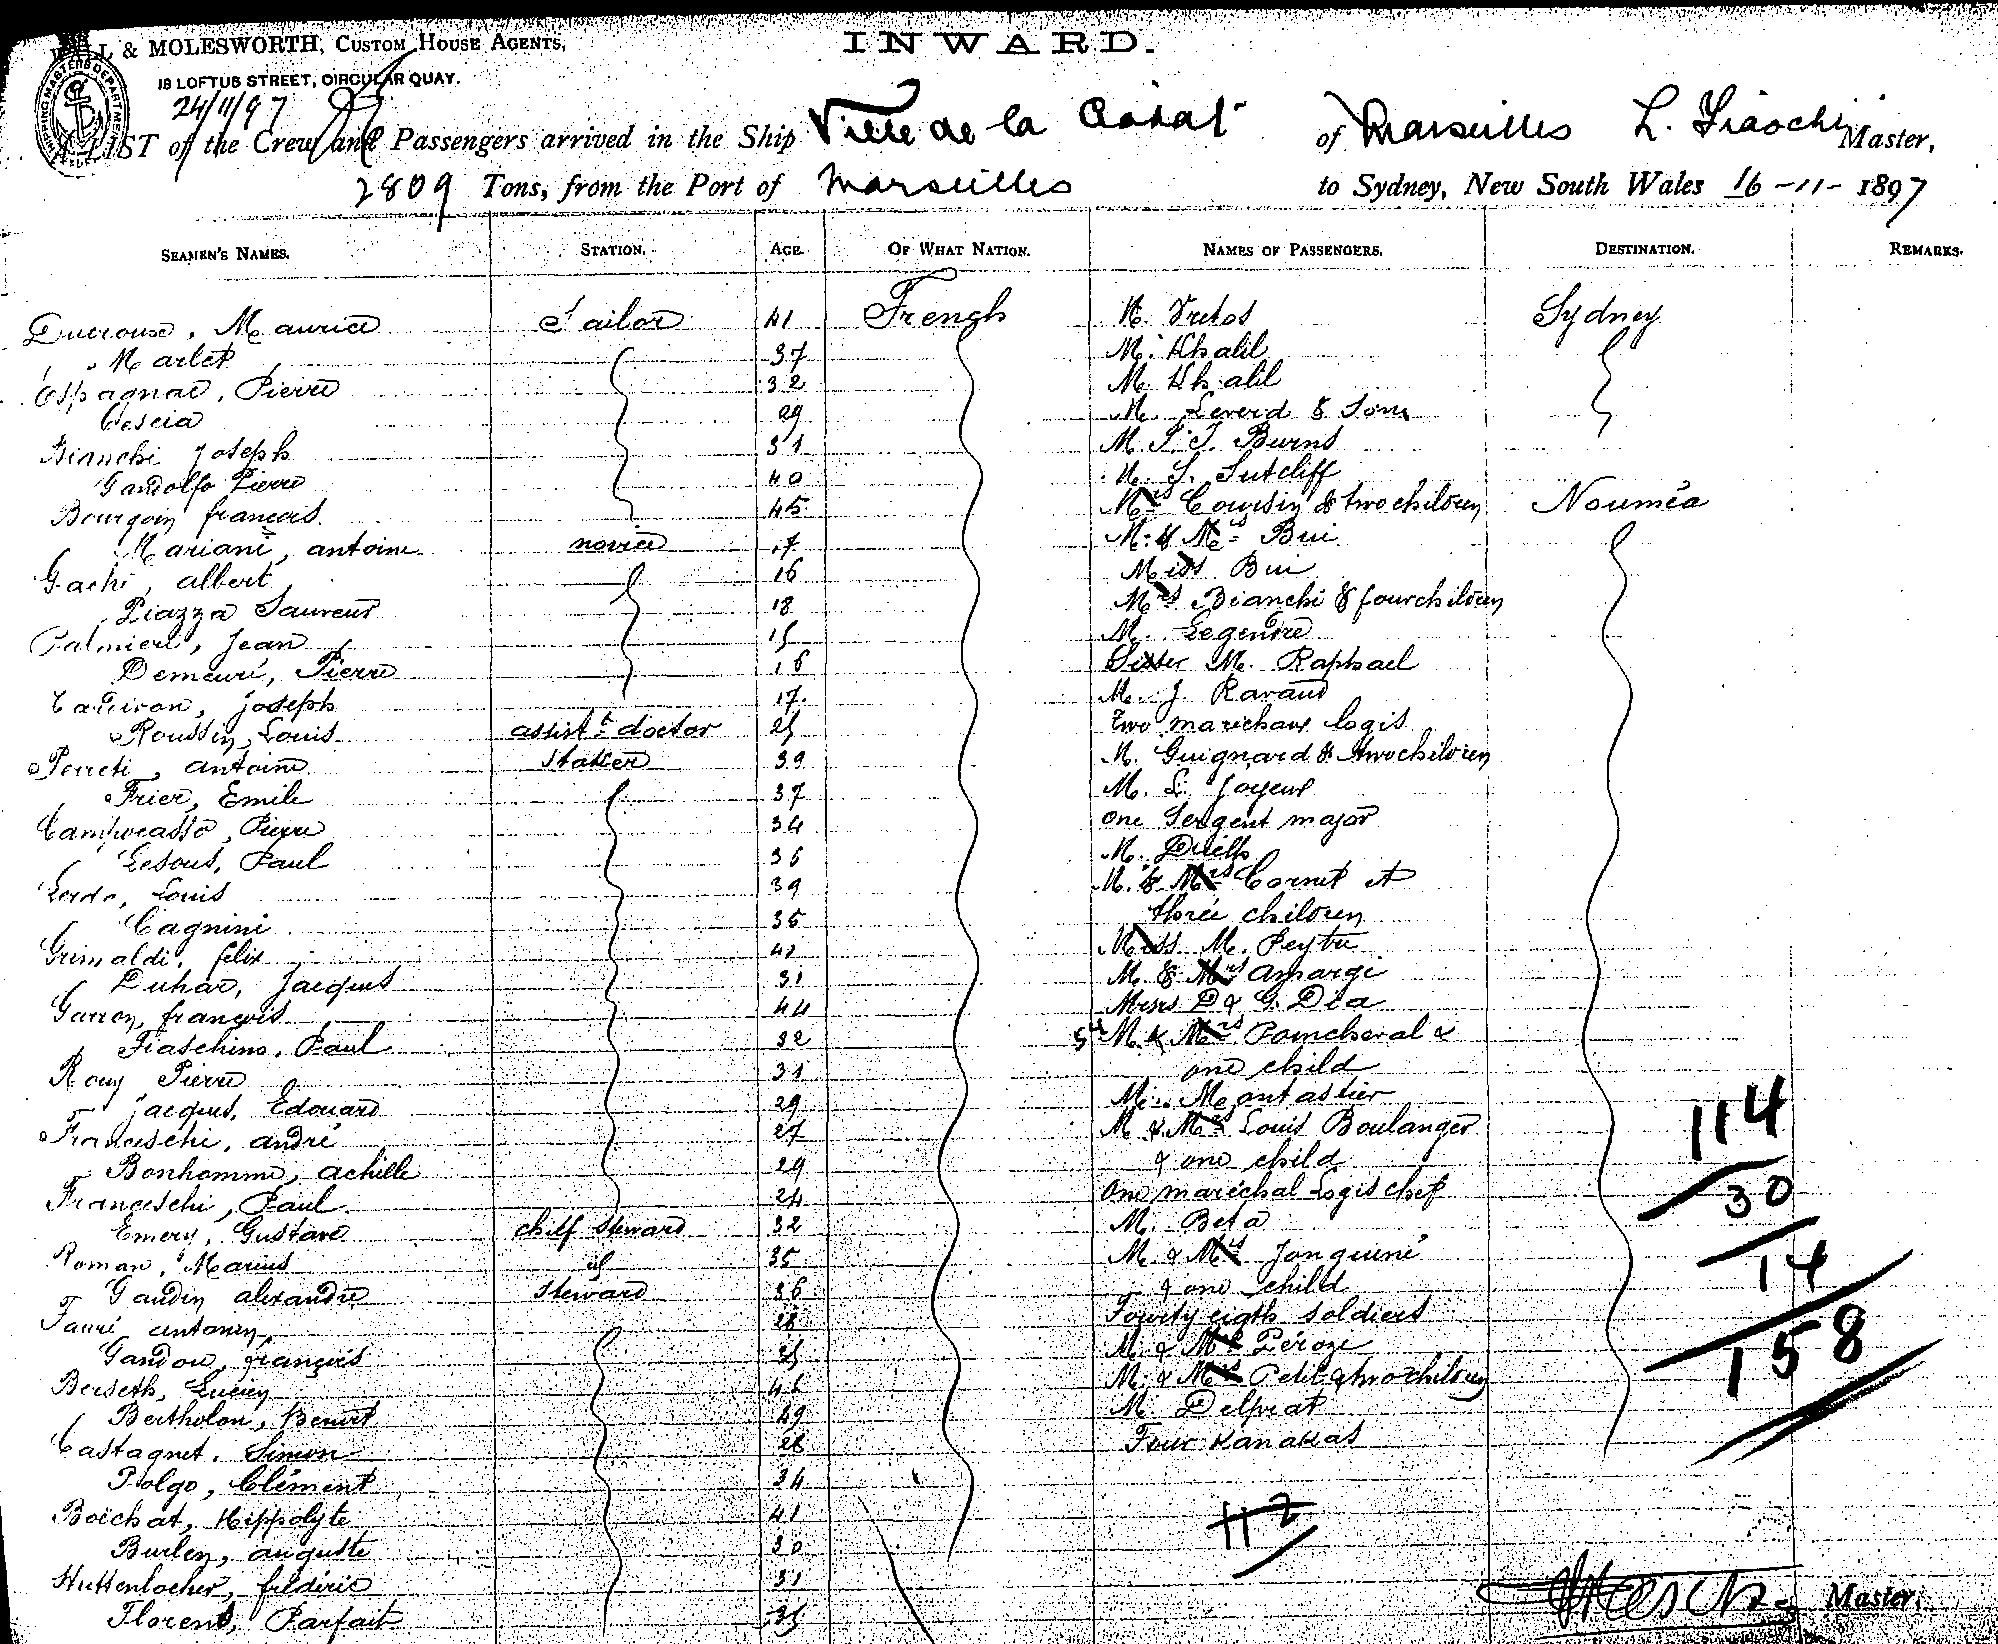 & MOLESWORTH, CUSTOM HOUSE AGENTS,
INWARD.
18 LOFTUS STREET, CIRCULAR QUAY.
SHIPPING MASTERS DEPARTMENT
24/11/97
A LIST of the Crew and Passengers arrived in the Ship Ville de la Ciotat of Marseilles L. Fiaschi Master,
2809 Tons, from the Port of Marseilles to Sydney, New South Wales 16-11-1897
SEAMEN'S NAMES. STATION. AGE. OF WHAT NATION. NAMES OF PASSENGERS. DESTINATION. REMARKS.
Maurice Sailor 41 French M. Vretos Sydney
37 M. Khalil
Espagnac, Pierre 32 M. Khalil
29 M. Leverd & Sons
Bianchi Joseph 31 M. P. T. Burns
Gandolfo Pierre 40 M. S. Sutcliff
Bourgoin françois 45 Mrs Coursin & two children Nouméa
Mariani, antoine novice 17 M. & Mrs Bui
Gachi, albert 16 Miss Bui
Piazza Sauveur 18 Mrs Bianchi & four children
Palmieri, Jean 15 M. Legendre
Demeuré, Pierre 16 Sister M. Raphael
joseph 17 M. J. Ravaud
Roussin, Louis assist.t doctor 25 two marechaux logis
Perreti, antoine stoker 39 M. Guignard & two children
Frier, Emile 37 M. L. Joyeux
Campocasso, Pierre 34 one Sergent major
Lesous, Paul 36 M.
Louis 39 M. & Mrs Cornet et
Cagnini 35 three children
Grimaldi, felix 42 Miss M. Peytu
Duhar, Jacques 31 M. & Mrs
Garron, françois 44 Messrs D & G. Dea
Fiaschino, Paul 32 M. & Mrs Poincheval &
Rouy Pierre 31 one child
Jacques, Edouard 29 M. Montastier
Franceschi, andré 27 M. & Mrs Louis Boulanger
Bonhomme, achille 29 & one child
Franceschi, Paul 24 one maréchal Logis chef
Emery, Gustave chief steward 32 M. Beta
Roman, Marius id 35 M. & Mrs Jonquené
Gaudin alexandre steward 36 & one child
Fauré antonin, 28 Fourty eigth soldiers
Gandou, françois 25 M. & Mrs Péroze
Berseth, Lucien 46 M. & Mrs Petit & two children
Bertholon, Benoit 49 M. Delprat
Castagnet, Simon 28 Four Kanakas
Polgo, Clément 34
Boichat, Hippolyte 41
Burlen, auguste 30
Huttenlocher, frédéric 31
Florent, Parfait 35
114
30
14
158
112
Master.